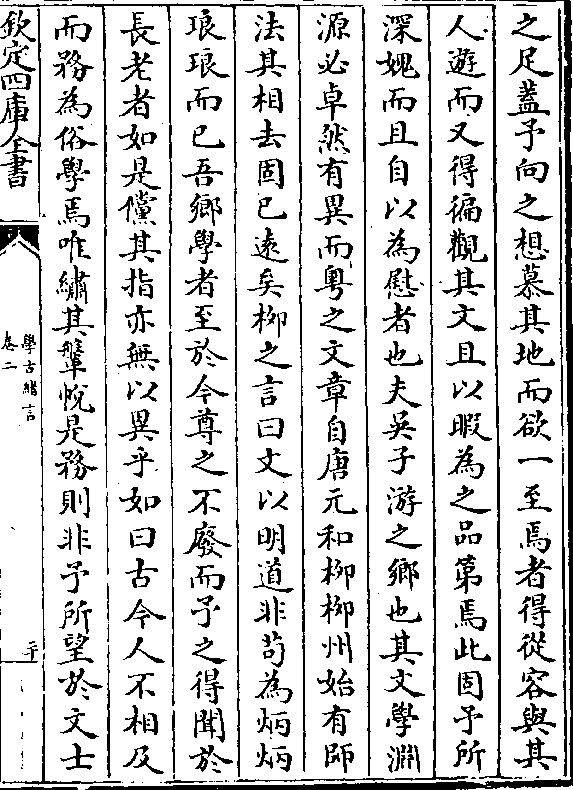 之足蓋予向之想慕其地而欲一至焉者得從容與其
人遊而又得徧觀其文且以暇為之品第焉此固予所
深媿而且自以為慰者也夫吳子游之鄉也其文學淵
源必卓然有異而粵之文章自唐元和柳柳州始有師
法其相去固已遠矣柳之言曰文以明道非苟為炳炳
琅琅而已吾鄉學者至於今尊之不廢而予之得聞於
長老者如是儻其指亦無以異乎如曰古今人不相及
而務為俗學焉唯繡其鞶帨是務則非予所望於文士
欽定四庫全書
學古緒言
卷二
二十